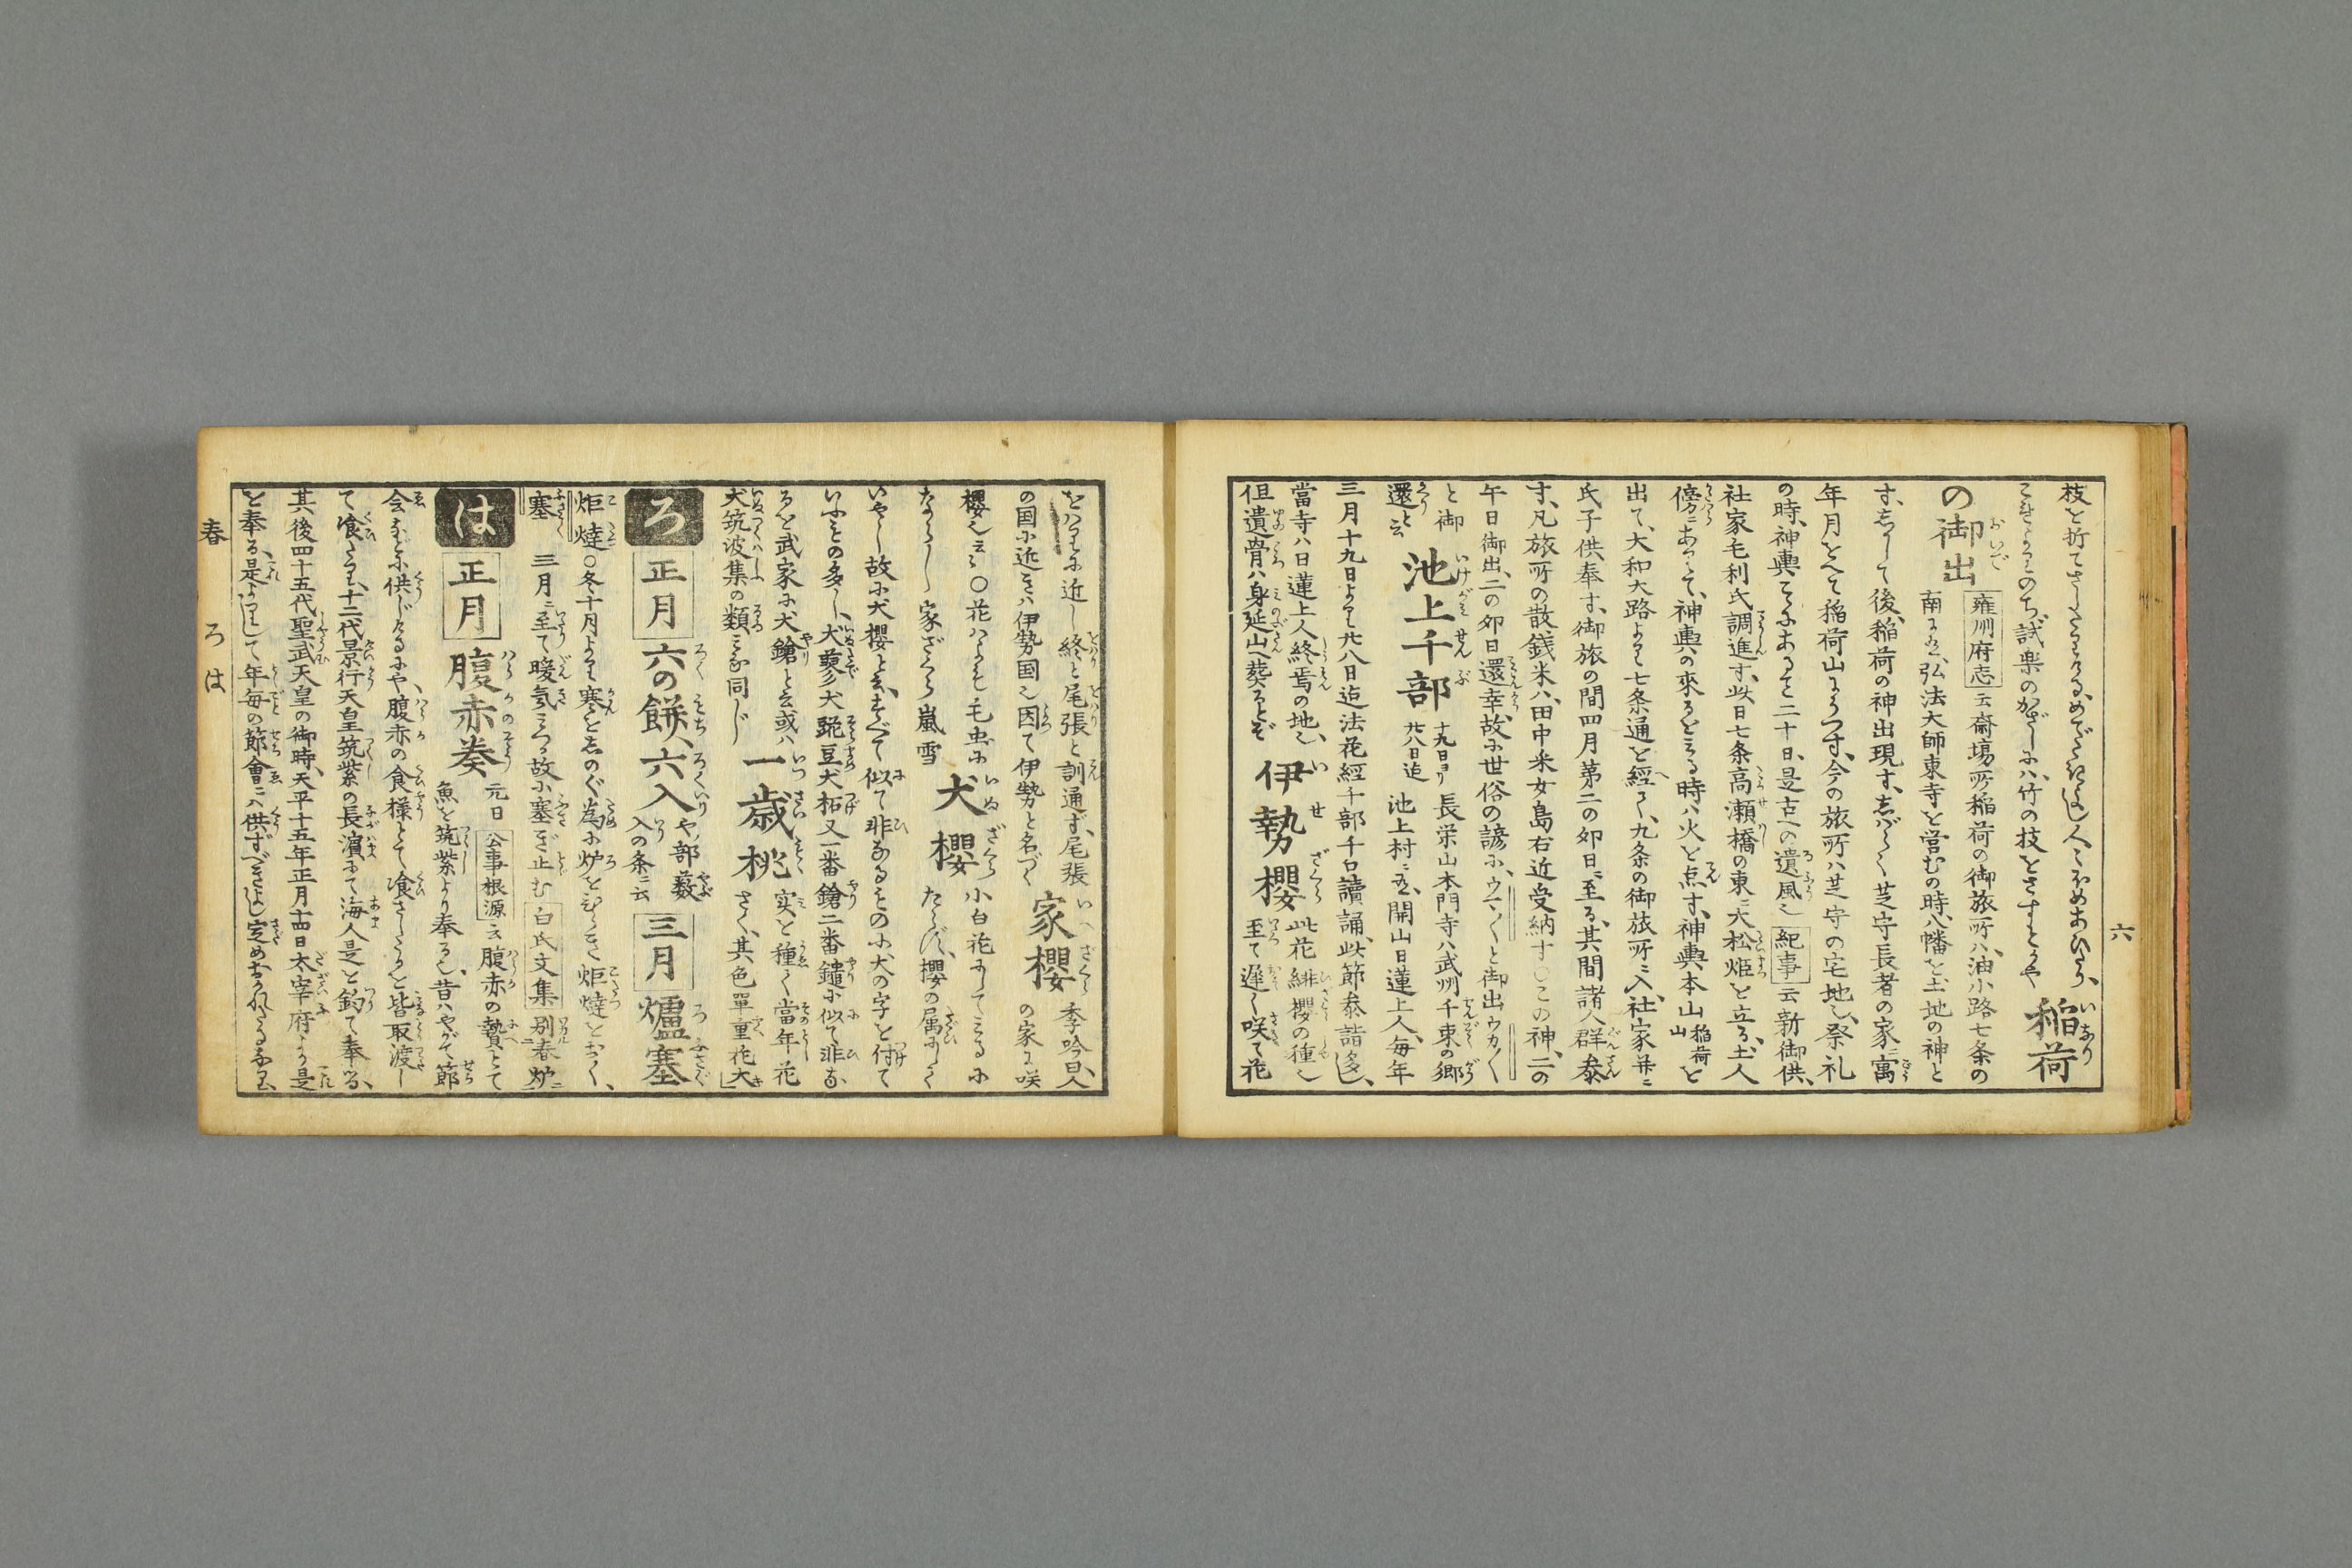 六
枝を折てさしたりける、めでたきよし人々ほめあひたり、
こまよりこのち、試楽のかざしにハ、竹の枝をさすとかや 稲荷
の御出 雍州府志云斎場所稲荷の御旅所ハ、油小路七条の
南にあり、弘法大師東寺を営むの時、八幡を土地の神と
す、しかして後、稲荷の神出現す、しばらく芝守長者の家ニ寓
年月をへて稲荷山にうつす、今の旅所ハ芝守の宅地也、祭礼
の時、神輿こゝにあること二十日、是古への遺風也 紀事云新御供、
社家毛利氏調進す、此日七条高瀬橋の東ニ大松炬を立る、土人
傍ニあつて、神輿の来るをみる時ハ火を点す、神輿本山稲荷山を
出て、大和大路より七条通を経て、九条の御旅所ニ入、社家并ニ
氏子供奉す、御旅の間四月第二の卯日ニ至る、其間諸人群参
す、凡旅所の散銭米ハ、田中采女島右近受納す○この神、二の
午日御出、二の卯日還幸、故に世俗の諺に、ウマ〳〵と御出ウカ〳〵
と御還と云 池上千部 十九日ヨリ廿八日迄 長栄山本門寺ハ武州千束の郷
池上村ニあり、開山日蓮上人、毎年
三月十九日より廿八日迄法花経千部千口読誦、此節参詣多し、
当寺ハ日蓮上人終焉の地也、
但遺骨ハ身延山ニ葬るとぞ 伊勢櫻 此花緋櫻の種也
至て遅く咲て花
をハりに近し終と尾張と訓通ず、尾張
の国に近きハ伊勢国也因て伊勢と名づく 家櫻 季吟曰人
の家に咲
櫻也云々○花ハちらで毛虫に
なるらし家ざくら嵐雪 犬櫻 小白花にしてみるに
たらず、櫻の属にして
いやし故に犬櫻と云、すべて似て非なるものに、犬の字を付て
いふもの多し、犬蓼犬豌豆犬柘又一番鎗二番鑓に似て非な
るを武家に犬鎗と云或ハ
犬筑波集の類ミな同じ 一歳桃 実を種て当年花
さく、其色單重花大き
ろ 正月 六の餅、六入や、部藪入の条ニ云 三月 爐塞
炬燵塞 ○冬十月より寒をしのぐ為に炉をひらき炬燵をおく、
三月ニ至て暖気ミつ故に塞ぎ止む 白氏文集 別春炉ニ
は 正月 腹赤奏 元日 公事根源云腹赤の贄とて
魚を筑紫より奉る也、昔ハやがて節
会などに供じけるにや、腹赤の食様とて喰さしたるを皆取渡し
て喰たり、十二代景行天皇筑紫の長濱にて海人是を釣て奉る、
其後四十五代聖武天皇の御時、天平十五年正月十四日太宰府より是
を奉る、是よりして年毎の節會ニハ供ずべきよし定めおかれたるなり
春 ろ は